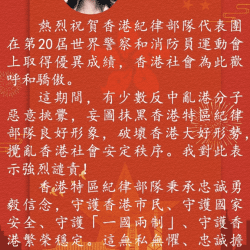 熱烈祝賀香港紀律部隊代表團
在第20屆世界警察和消防員運動會
上取得優異成績,香港社會為此歡
呼和驕傲。
這期間,有少數反中亂港分子
惡意挑釁,妄圖抹黑香港特區紀律
部隊良好形象,破壞香港大好形勢,
攪亂香港社會安定秩序。我對此表
示強烈譴責!
香港特區紀律部隊秉承忠誠勇
毅信念,守護香港市民、守護國家
安全、守護「一國兩制」、守護香
港繁榮穩定,這無私無懼、忠誠擔